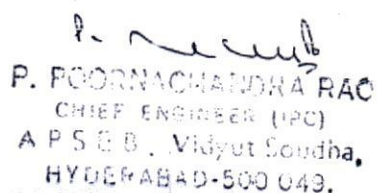 P. POORNACHANDRA RAO
CHIEF ENGINEER (IPC)
A P S E B . Vidyut Soudha,
HYDERABAD-500 049.